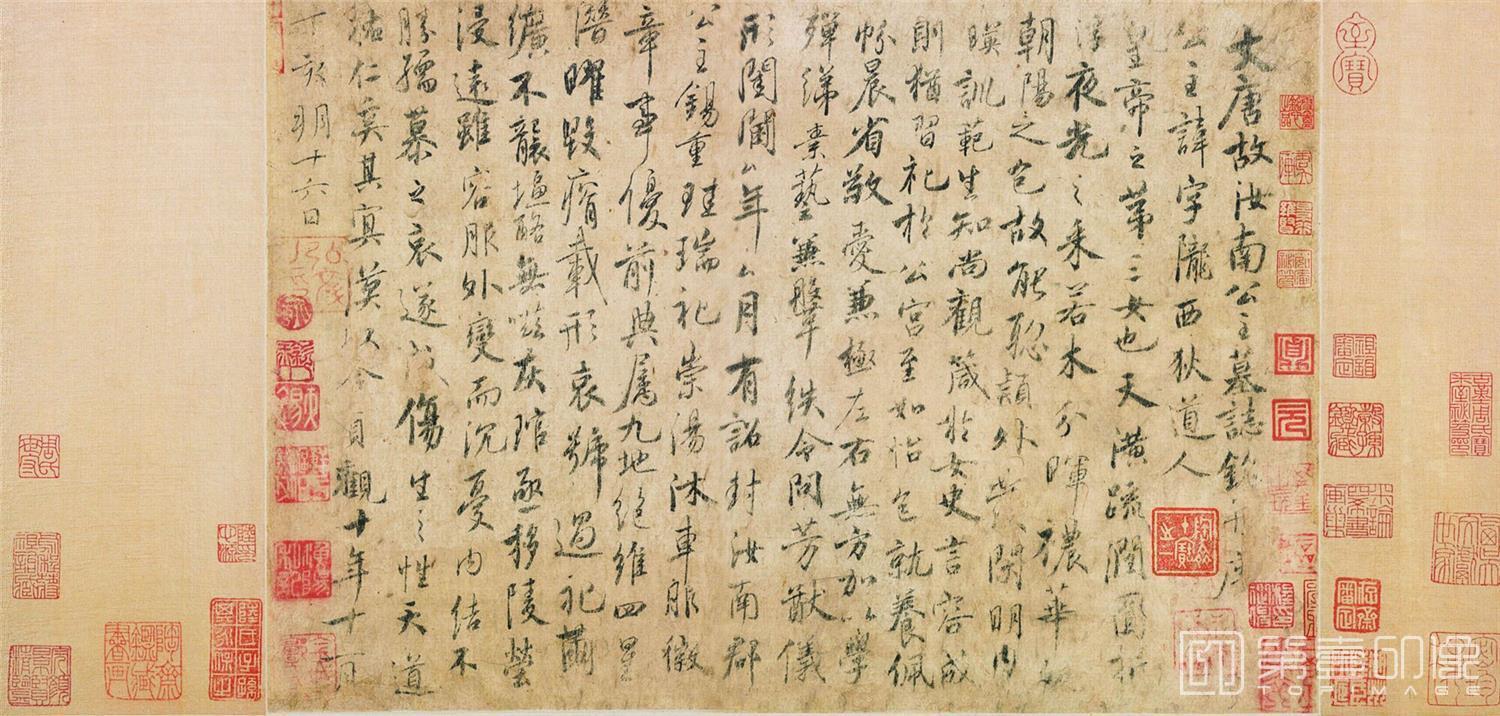 大唐故汝南公主墓誌銘并序
公主諱字隴西狄道人
皇帝之第三女也天潢疏潤圓折
浮夜光之采若木分暉穠華如
朝陽之色故能聡穎外發閑明內
暎訓範生知尚觀箴於女史言容成
則猶習礼於公宮至如怡色就養佩
帉晨省敬愛兼極左右無方加以學
殫綈素藝兼鞶紩令問芳猷儀
形閨閫厶年厶月有詔封汝南郡
公主錫重珪瑞礼崇湯沐車服徽
章事優前典屬九地絕維四星
潛曜毀瘠載形哀號過礼繭
纊不襲塩酪無嗞灰琯亟移陵塋
浸遠雖容服外變而沉憂內結不
勝孺慕之哀遂成傷生之性天道
祐仁奚其冥漠以今貞觀十年十一月
丁亥朔十六日
第壹印像
TOP IMAGE